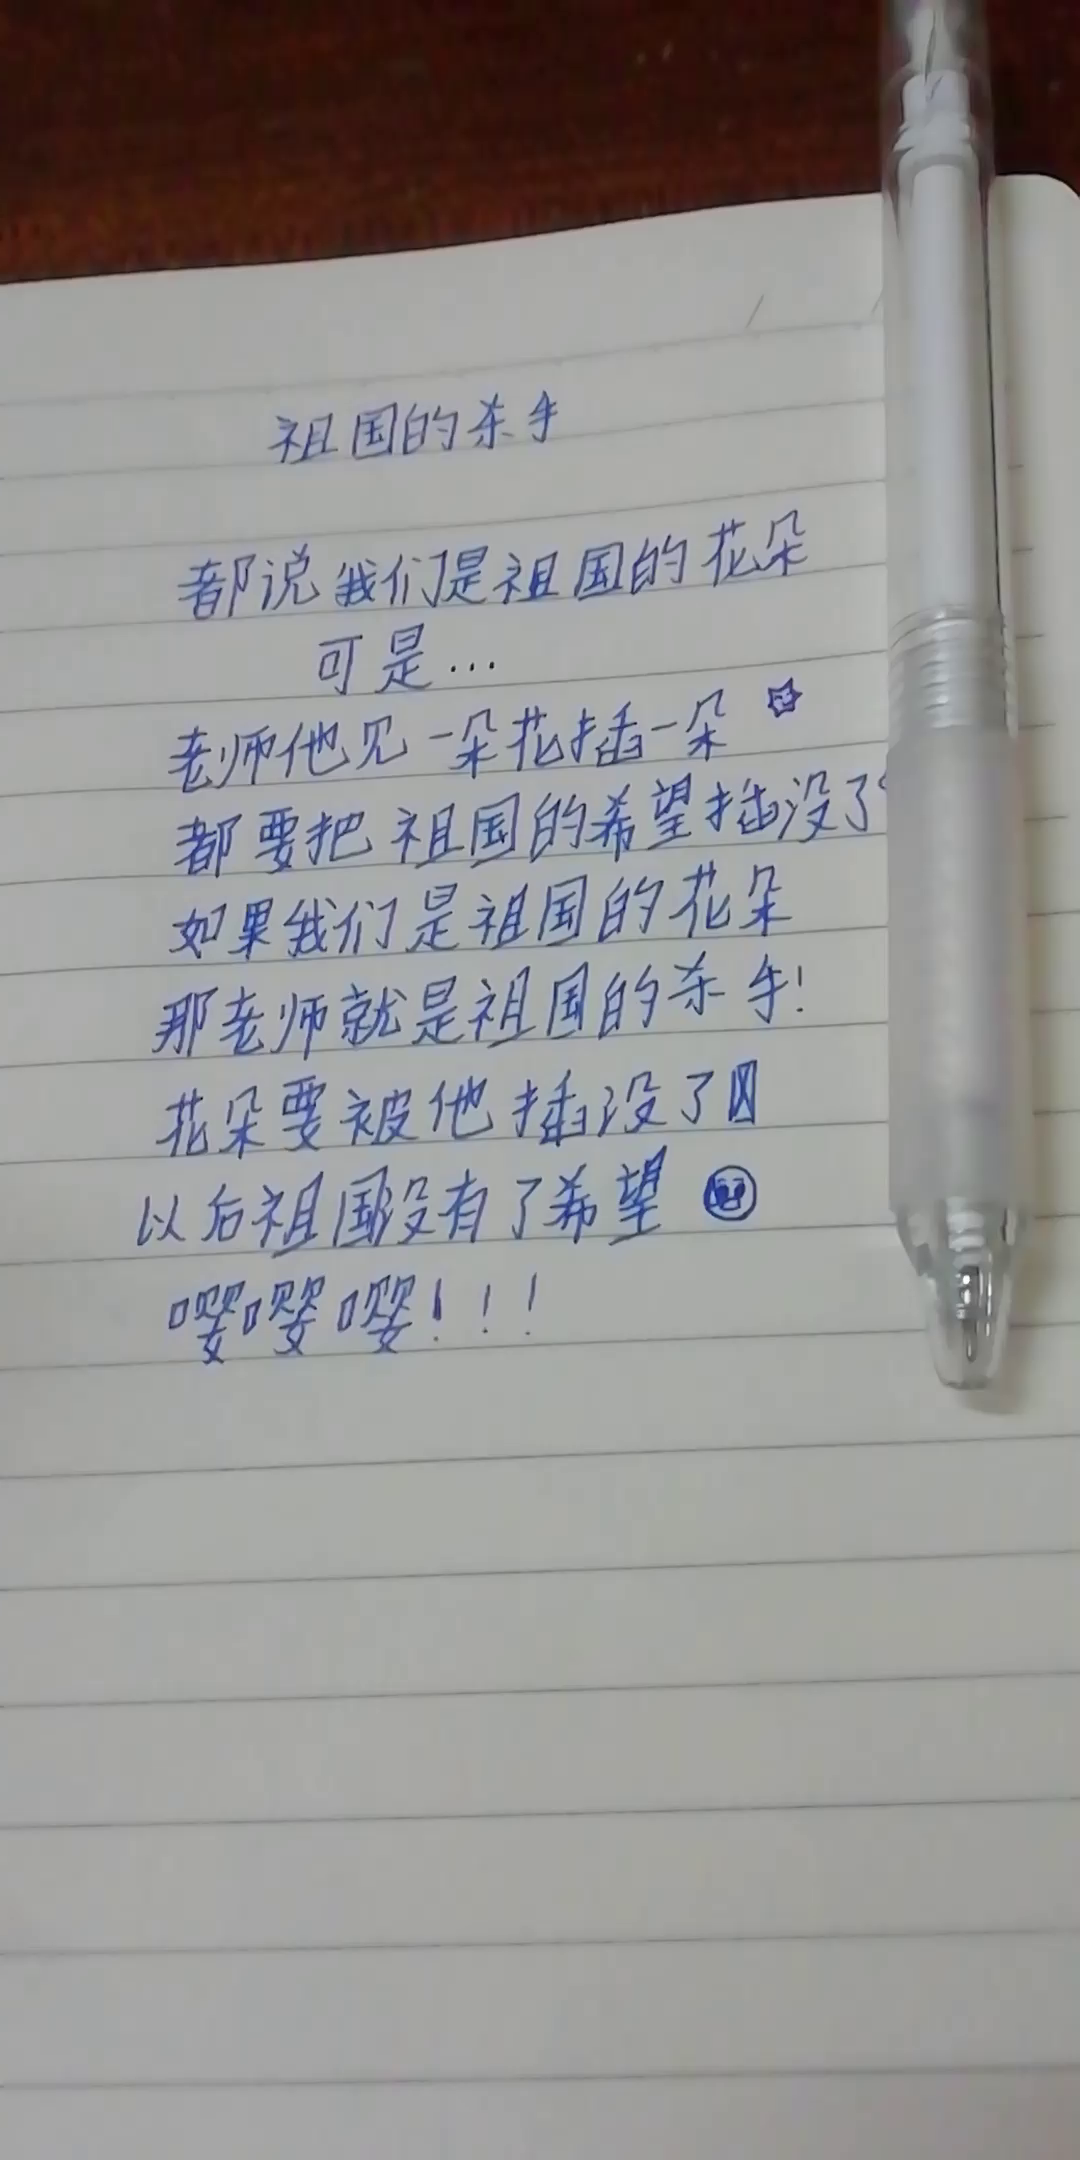 祖国的杀手
都说我们是祖国的花朵
可是...
老师他见一朵花插一朵
都要把祖国的希望插没了
如果我们是祖国的花朵
那老师就是祖国的杀手!
花朵要被他插没了
以后祖国没有了希望
嘤嘤嘤!!!